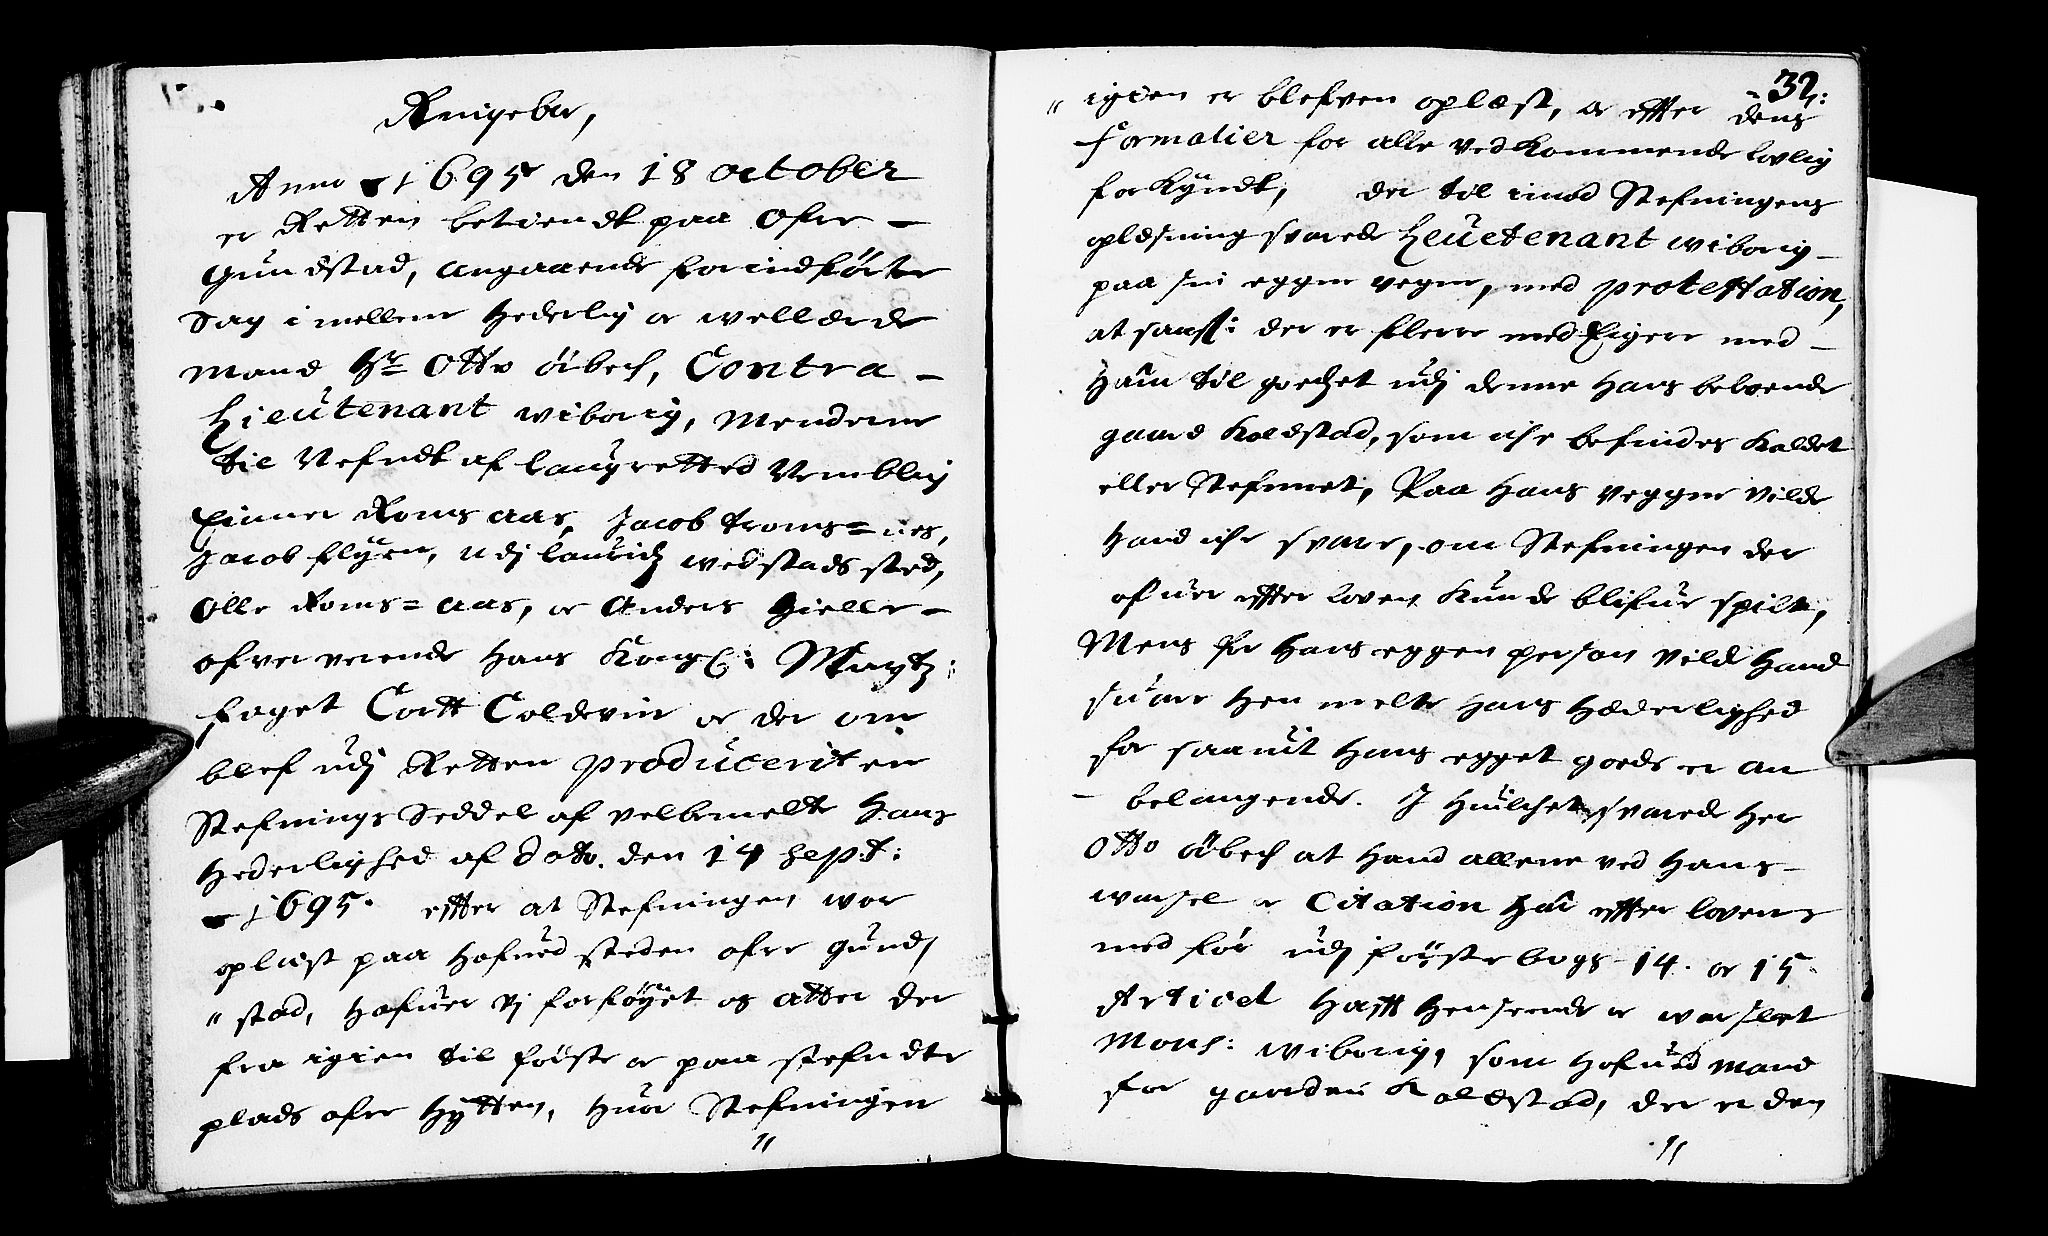 Ringeboe,
Anno 1695 den 18 October
er Retten betiendt paa Ofre
Gundstad, angaaende forindførte
Sag i mellem Hederlig oc wellærde
Mand Hr Otto Øibech, Contra
Lieutenant wiborig, Menderne
til Nefndt af laugretted Nemblig
Einner Romsaas, Jacob troms=nes,
Jacob flyen, udj lauridz wedstads sted,
Olle Roms=aas, oc Anders Hielle
ofververende Hans Kongl: Maytz:
foget Cortt Coldevin oc der om
blef udj Retten producerit en
Stefnings Seddel af velbemelte Hans
Hederlighed af dato. den 14 Sept:
1695. effter at Stefningen war
oplæst paa Hofued steden ofre Gund
" stad, Hafuer vj forføyet os atter der
fra igien til første oc paa stefndte
plads ofre Hytten, Huor Stefningen
"
32:
" igien er blefven oplæst, oc effter dens
formalier for alle vedkommende lovlig
forkyndt, der til imod Stefningens
oplæsning svarede Leuetenant wiborig
paa sin eggen vegne, med protestation,
at saasom der er flere med Eigere med
Ham til godzet udj denne Hans beboende
gaard Koldstad, som iche befindes Kaldet
eller Stefnnet, Paa Hans vegne vilde
Hand iche svare, om Stefningen der
ofuer effter loven Kunde blifue spilt,
Mens for Hans eggen person vilde Hand
suare Hen melte Hans Hæderlighed
for saauit Hans egget goeds er an
belangende. J Huilchet svarede Her
Otto Øibech at Hand allene ved Hans
warsel oc Citation Har effter lovens
med før udj første bogs 14. oc 15.
Articel Hafft Henseende oc warslet
Mons: wiborig, som Hofued Mand
for gaarden Koldstad, der er den
"